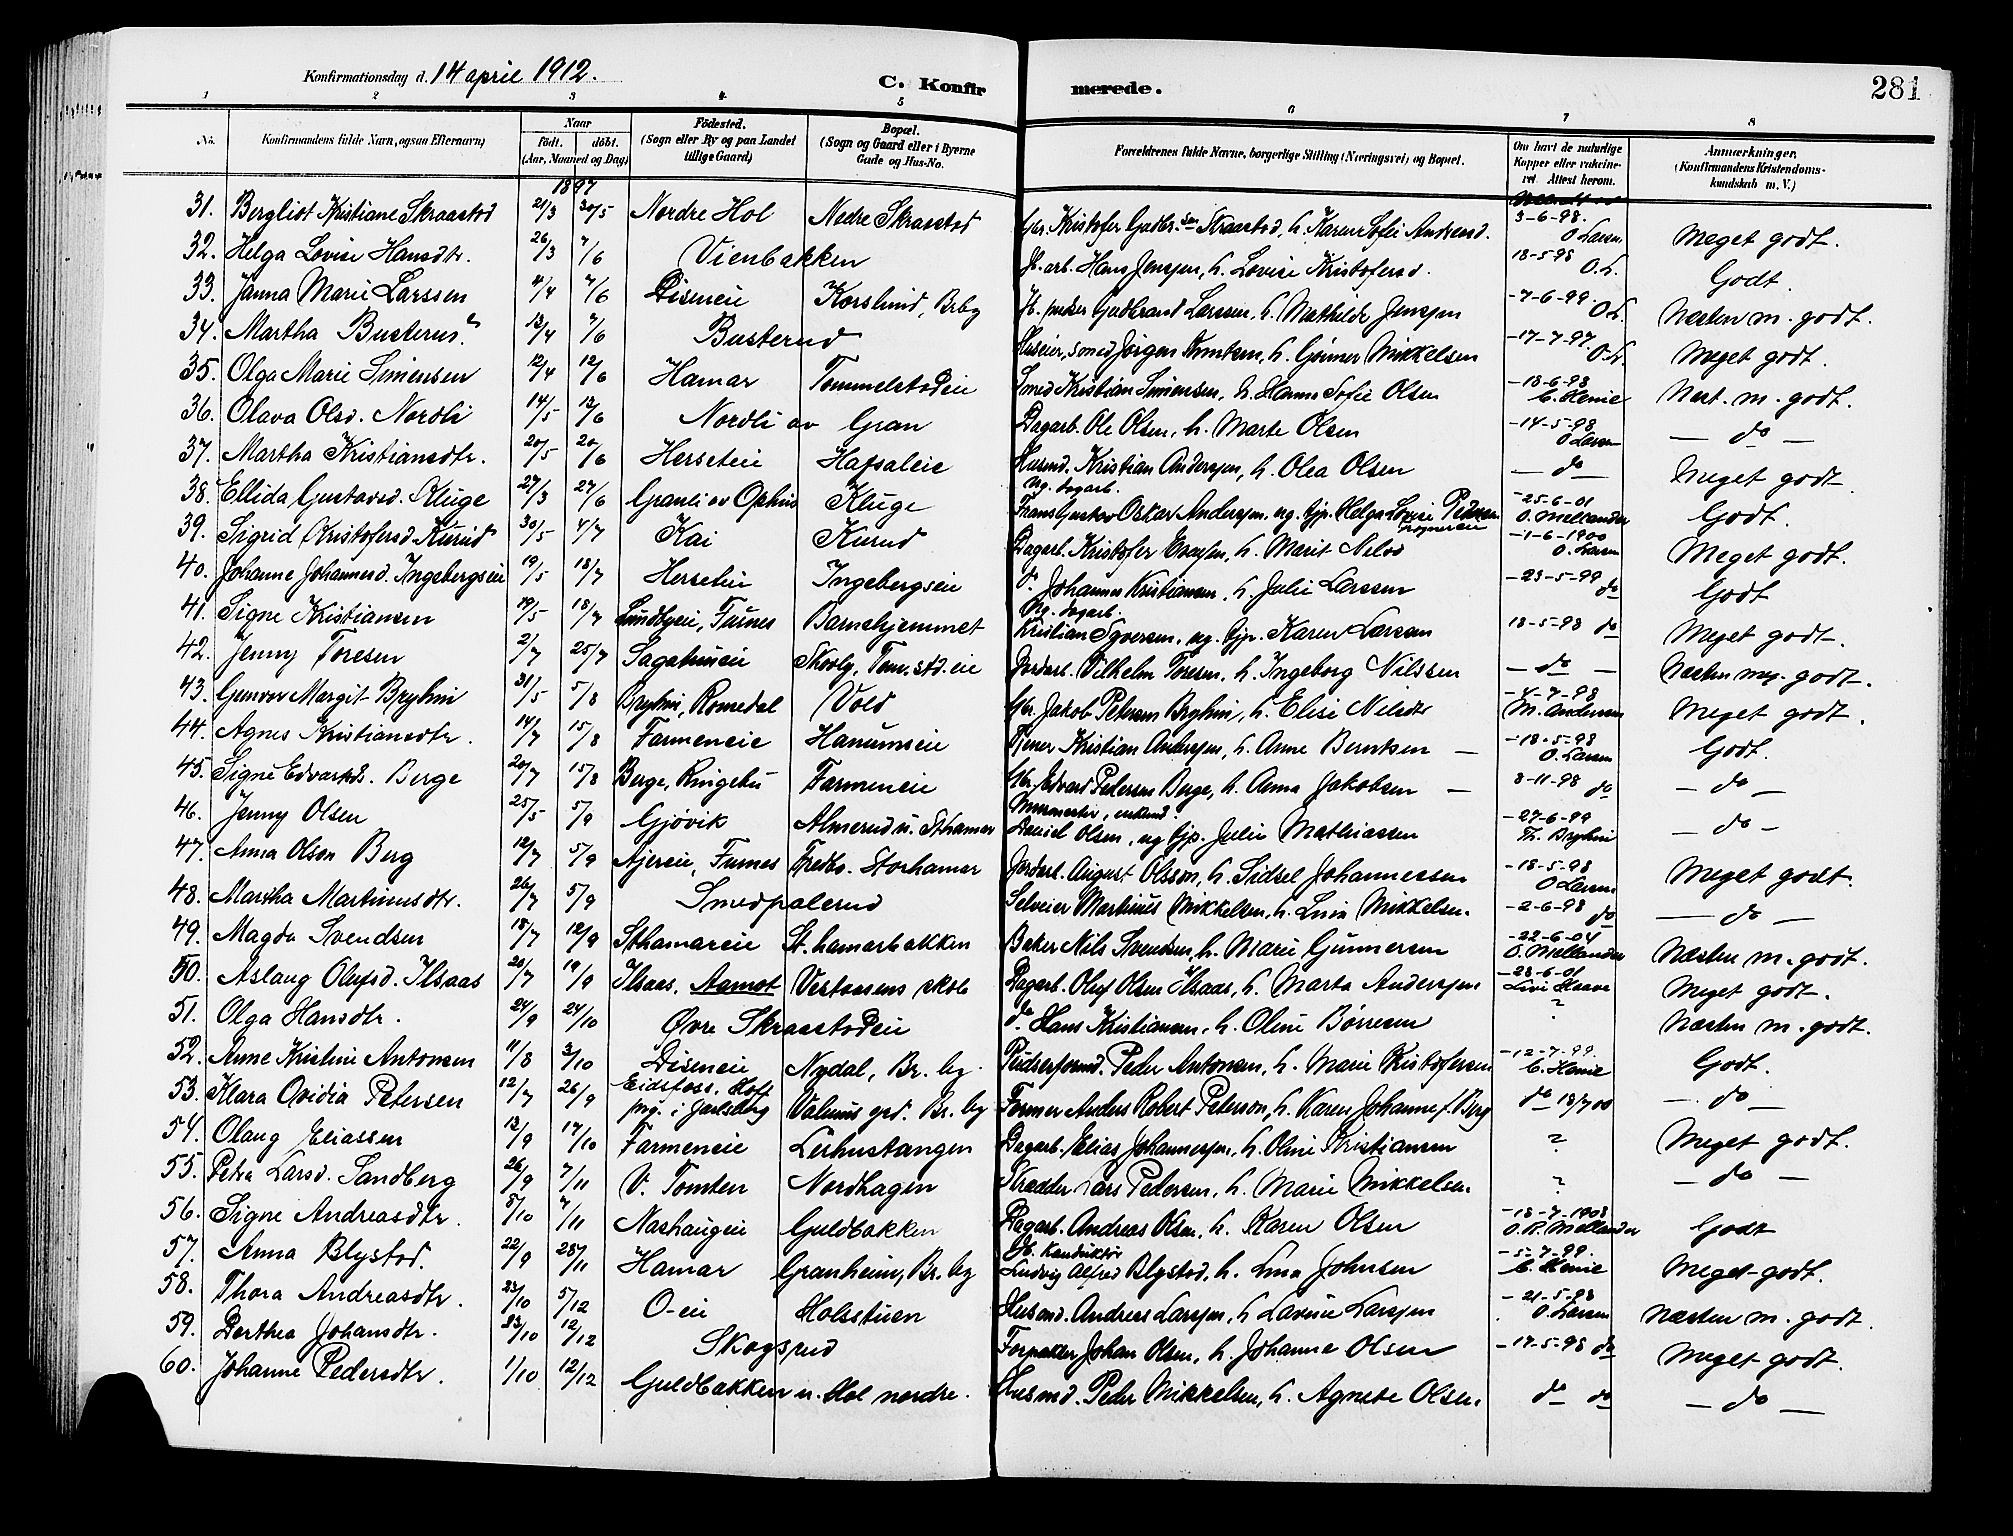 Konfirmationsdag d. 14 april 1912.
C. Konfirmerede.
281
1 2 3 4 5 6 7 8
No. Konfirmandens fulde Navn, ogsaa Efternavn) Naar Födt. döbt. (Aar, Maaned og Dag) Födested. (Sogn eller By og paa Landet tillige Gaard) Bopæl. (Sogn og Gaard eller i Byerne Gade og Hus-No. Forældrenes fulde Navne, borgerlige Stilling (Næringsvei) og Bopæl. Om havt de naturlige Kopper eller vakcineret. Attest herom. Anmærkninger. (Konfirmandens Kristendomskundskab m. V.)
1897
31. Bergliot Kristiane Skraastad 21/3 30/5 Nordre Hol Nedre Skraastad Gbr. Kristofer Gudbr.sen Skraastad, h. Karen Sofie Andreasd. 3-6-98. O Larsen Meget godt.
32. Helga Lovise Hansdtr. 26/3 7/6 Vienbakken Hans Jensen, h. Lovise Kristofersd. 18-5-98 O.L. Godt.
33. Janna Marie Larssen 4/4 7/6 Diseneie Korslund, Brby Gudbrand Larssen, h. Mathilde Jenssen -7-6-99. O.L. Næsten m. godt.
34. Martha Busterud 13/4 7/6 Busterud Huseier, smed Jörgen Knutsen, h. Mikkelsen -17-7-97. O.L. Meget godt.
35. Olga Marie Simensen 12/4 12/6 Hamar Tommelstadeie Smed Kristian Simensen, h. Hanna Sofie Olsen -18-6-98 C. Henie Næst. m. godt.
36. Olava Olsd. Nordli 14/5 12/6 Nordli av Gran Dagarb. Ole Olsen, h. Marte Olsen -14-5-98 O Larsen — do —
37. Martha Kristiansdtr. 20/5 20/6 Herseteie Hafsaleie Husmd. Kristian Anderssen, h. Olea Olsen — do — Meget godt
38. Ellida Gustavsd. Kluge 27/3 27/6 Granli av Ophus Kluge ug. dagarb. Frans Gustav Oskar Anderssen, ug. tjp. Helga Lovise Pedersen -25-6-01 O. Mellander Godt.
39. Sigrid Kristofersd Kurud 30/5 4/7 Kai Kurud Dagarb. Kristofer Evensen, h. Marit Nilsd -1-6-1900 O. Larsen Meget godt.
40. Johanne Johannesd. Ingebergseie 19/5 18/7 Herseteie Ingebergseie do Johannes Kristiansen, h. Julie Larssen -23-5-99 do Godt
41. Signe Kristiansen 19/5 18/7 Lundbyeie, Furnes Barnehjemmet Ug. dagarb. Kristian Syversen, ug. tjp. Karen Larssen 18-5-98 do Meget godt.
42. Jenny Toresen 2/7 25/7 Sagatuneie Skovly, Tom.std.eie Jordarb. Vilhelm Toresen, h. Ingeborg Nilssen — do — Næsten meg. godt.
43. Gunvor Margit Bryhni 31/5 5/8 Bryhni, Romedal Vold Gbr. Jakob Petersen Bryhni, h. Elise Nilsdtr -4-7-98 M. Andersen Meget godt.
44. Agnes Kristiansdtr. 14/7 15/8 Farmeneie Hanumseie Tjener Kristian Anderssen, h. Anne Berntsen — -18-5-98 O. Larsen Godt.
45. Signe Edvardsd. Berge 20/7 15/8 Berge, Ringebu Farmeneie Gbr. Edvard Pedersen Berge, h. Anna Jakobsen — 8-11-98 do — do —
46. Jenny Olsen 25/5 5/9 Gjövik Almerud u. Sthamar Murmester, enkemd. Daniel Olsen, ug tjp. Julie Mathiassen -27-6-99 Th. Bryhni — do —
47. Anna Olson Berg 12/7 5/9 Ajereie, Furnes Fredbo. Storhamar Jordarb. August Olsson, h. Sidsel Johannessen -18-5-98 O Larsen Meget godt.
48. Martha Martinusdtr. 26/7 5/9 Smedpalerud Selveier Martinus Mikkelsen, h. Lina Mikkelsen. -2-6-98 do — do —
49. Magda Svendsen 18/7 12/9 Sthamareie St.hamarbakken Baker Nils Svendsen, h. Marie Gunnersen -22-6-04 O. Mellander Næsten m. godt.
50. Aslaug Olufsd. Ilsaas 20/7 19/9 Ilsaas, Aamot Vestaasens skole Dagarb. Oluf Olsen Ilsaas, h. Marta Anderssen -23-6-01 Meget godt.
51. Olga Hansdtr. 24/9 24/10 Øvre Skraastadeie do Hans Kristiansen, h. Oline Børresen ? Næsten m. godt.
52. Anne Kristine Antonsen 11/8 3/10 Diseneie Nydal, Br. by. Pudserformd. Peder Antonsen, h. Marie Kristofersen -12-7-99. C. Henie Godt.
53. Klara Ovidia Petersen 12/7 26/9 Eidsfoss, Hoff prg. i Jarlsberg Valmus grd. Br. by Former Anders Robert Peterson, h. Karen Johanne f. Berg do 18/7 00 — do —
54. Olaug Eliassen 13/9 17/10 Farmeneie Lishustangen Dagarb. Elias Johannessen, h. Oline Kristiansen ? Meget godt.
55. Petra Larsd. Sandberg 26/9 7/11 V. Tomten Nordhagen Skrædder Lars Pedersen, h. Marie Mikkelsen ? — do —
56. Signe Andreasdtr. 5/10 7/11 Nashaugeie Guldbakken Dagarb. Andreas Olsen, h. Karen Olsen -18-7-1908 O.P. Mellander Godt
57. Anna Blystad. 22/9 28/11 Hamar Granheim, Br. by Jb. Konduktör Ludvig Alfred Blystad, h. Lina Johnsen -5-7-99. C. Henie Meget godt.
58. Thora Andreasdtr. 23/10 5/12 O-eie Holsstuen Husmd. Andreas Larssen, h Lavine Larssen -21-5-98 O. Larsen Næsten m. godt.
59. Dorthea Johansdtr. 23/10 12/12 Skogsrud Forpakter Johan Olsen, h. Johanne Olsen -17-5-98 do Meget godt.
60. Johanne Pedersdtr. 1/10 12/12 Guldbakken u. Hol nordre. Husmd. Peder Mikkelsen, h. Agnete Olsen. do do — do —